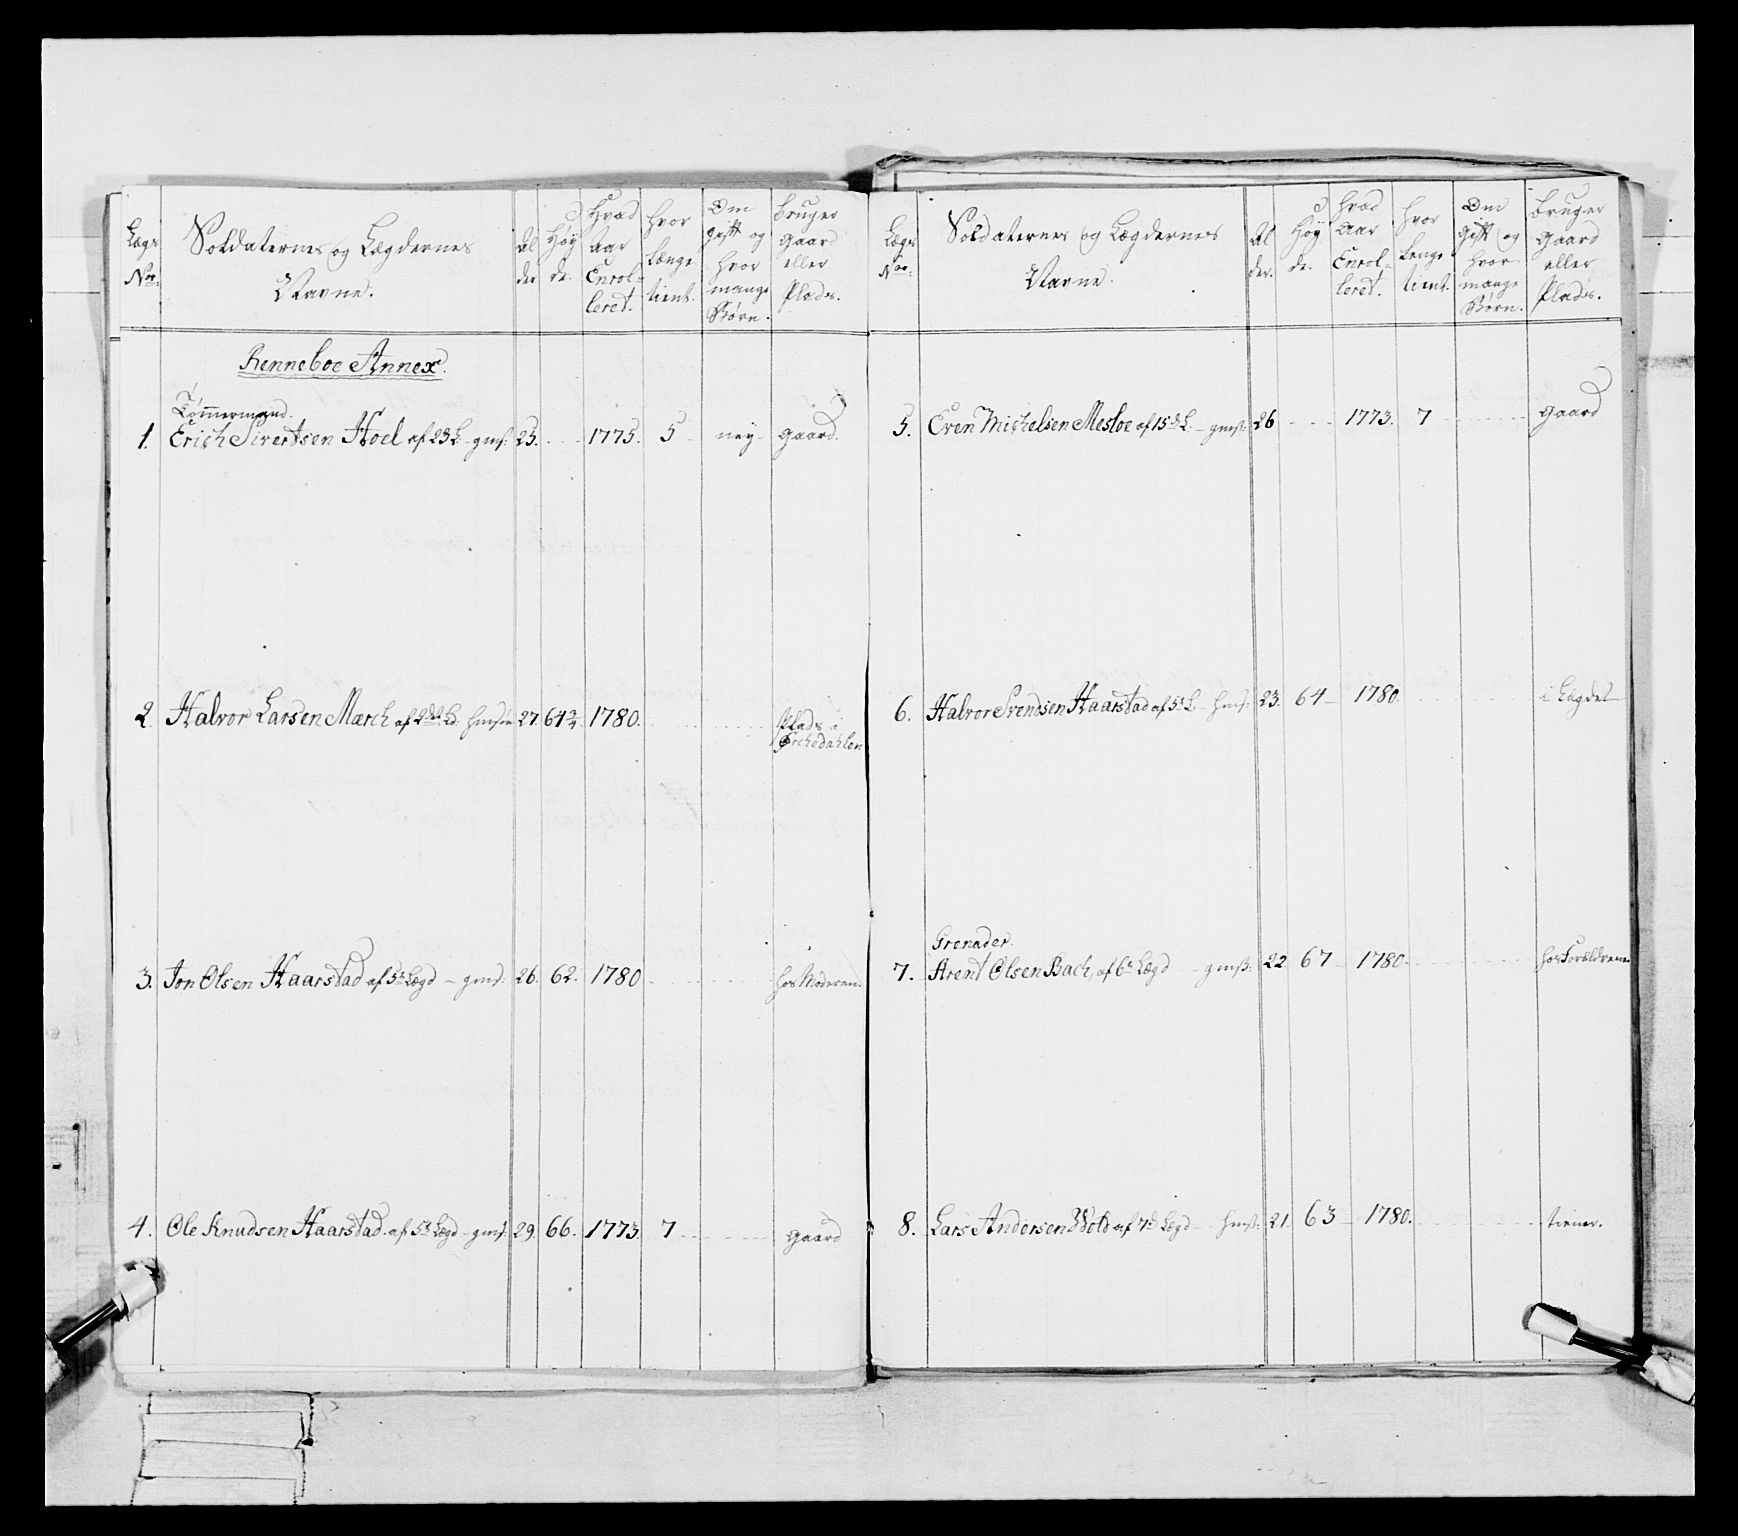 Lægs No
Soldaternes og Lægdernes Navne.
Al der
Høy de.
Hvad Aar Enrol- leret.
hvor længe tient.
Om gift og hvor mange Børn.
bruger gaard eller Plads.
Renneboe Annex.
Tømmermand.
1. Erich Sivertsen Hoel af 23 L. - gms: 25. 1775. 5 ney gaard.
2. Halvor Larsen Mærch af 2de Ld. 27. 64 3/4 1780. Plads i Orchedahlen
3. Jon Olsen Haarstad af 5te Lægd - gms: 26. 62. 1780 hos Moderen.
4. Ole Knudsen Haarstad af 5te Lægd - gms: 29. 66. 1773. 7 gaard
Lægs No
Soldaternes og Lægdernes Navne.
Al der.
Høy de.
Hvad Aar Enrol- leret.
hvor lenge tient.
Om Gift og hvor mange Børn.
bruger gaard eller Plads.
5. Even Michelsen Mesloe af 15de L. - gms: 26 1773. 7 gaard
6. Halvor Svendsen Haarstad af 5te L. - hms: 23. 64 - 1780. i Lægdet
Grenader.
7. Arent Olsen Bach, af 6te Lægd - gms: 22 67 - 1780. hos Forældrene
8. Lars Andersen Wold af 7de Lægd - hms: 21. 63 - 1780. tiener.